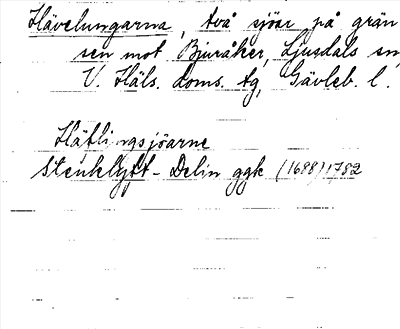 Hävelungarna, två sjöar på grän
sen mot Bjuråker, Ljusdals sn
V. Häls. doms. tg, Gävleb. l.
Häflingsjöarne
Stenklyft - Delin ggk (1688) 1782